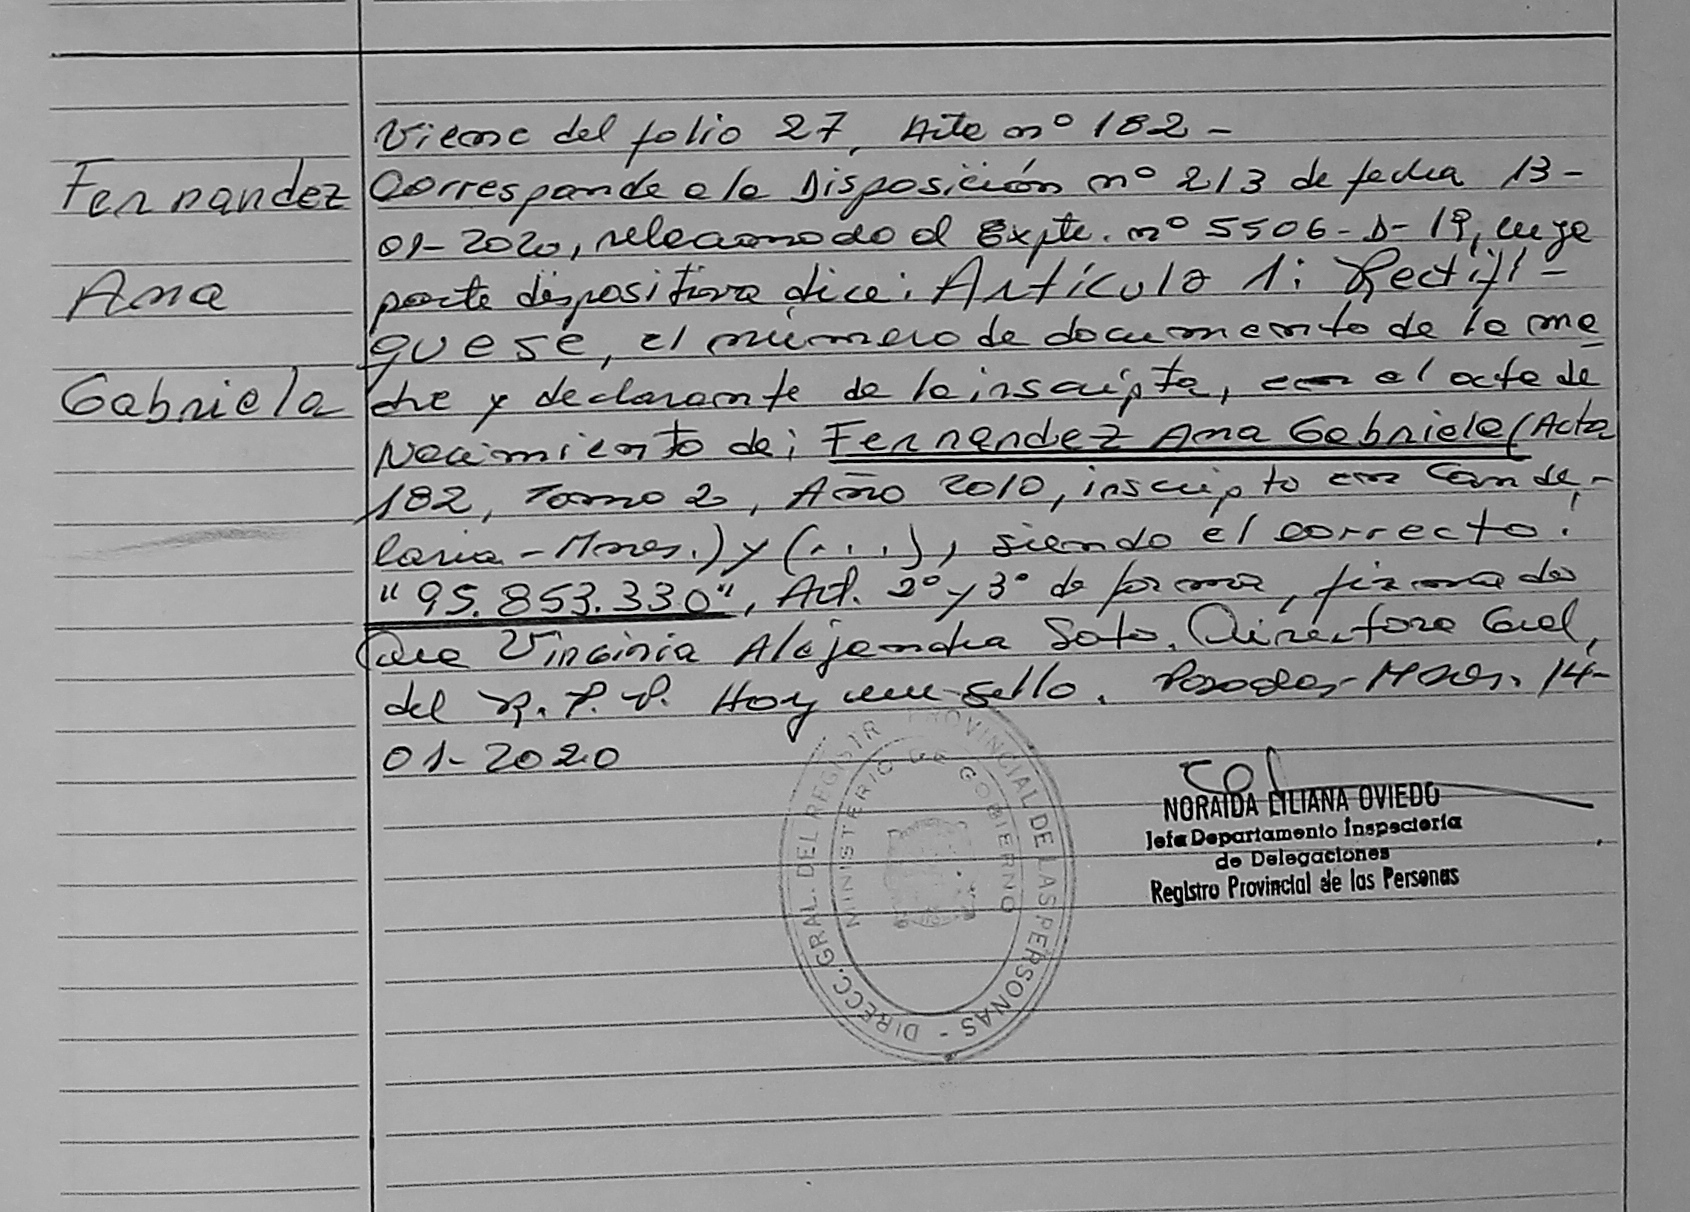 Viene del folio 27, Acta nº 182-
Fernandez
Corresponde a la Disposición nº 213 de fecha 13-
01-2020, relacionado al Expte. nº 5506-D-19, cuya
Ana
parte dispositiva dice: Artículo 1: Rectifi-
quese, el número de documento de la ma
Gabriela
dre y declarante de la inscripta, en el acta de
Nacimiento de: Fernandez Ana Gabriela (Acta
182, Tomo 2, Año 2010, inscripto en Cande-
laria - Mnes.) y (...), siendo el correcto:
"95.853.330", Art. 2º y 3º de forma, firmado
Virginia Alejandra Soto. Directora Gral,
del R. P. P. Hay un sello. Posadas, Mnes. 14-
01-2020
DIRECC. GRAL. DEL REGISTR PROVINCIAL DE LAS PERSONAS -
MINISTERIO DE GOBIERNO
NORAIDA LILIANA OVIEDO
Jefa Departamento Inspectoría
de Delegaciones
Registro Provincial de las Personas